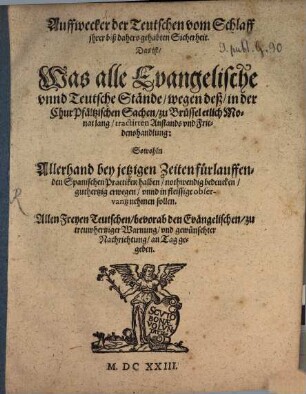 Auffwecker der Teutschen vom Schlaff
jhrer biß dahero gehabten Sicherheit.
9. publ. g. 90
Das ist/
Was alle Evangelische
vnnd Teutsche Stände/wegen deß/in der
Chur Pfältzischen Sachen/zu Brüssel etlich Mo-
nat lang/tractirten Anstands vnd Frie-
denshandlung:
Sowohln
Allerhand bey jetzigen Zeiten fürlauffen-
den Spanischen Practiken halben/nothwendig bedencken/
gutherzig erwegen/vnnd in fleissige obser-
vantz nehmen sollen.
Allen Freyen Teutschen/bevorab den Evangelischen/zu
trewhertziger Warnung/vnd gewünschter
Nachrichtung/an Tag ge-
geben.
M. DC XXIII.